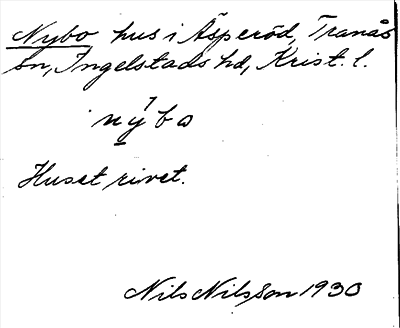 Nybo hus i Äsperöd, Tranås
sn, Ingelstads hd, Krist. l.
i nýbo
Huset rivet.
Nils Nilsson 1930